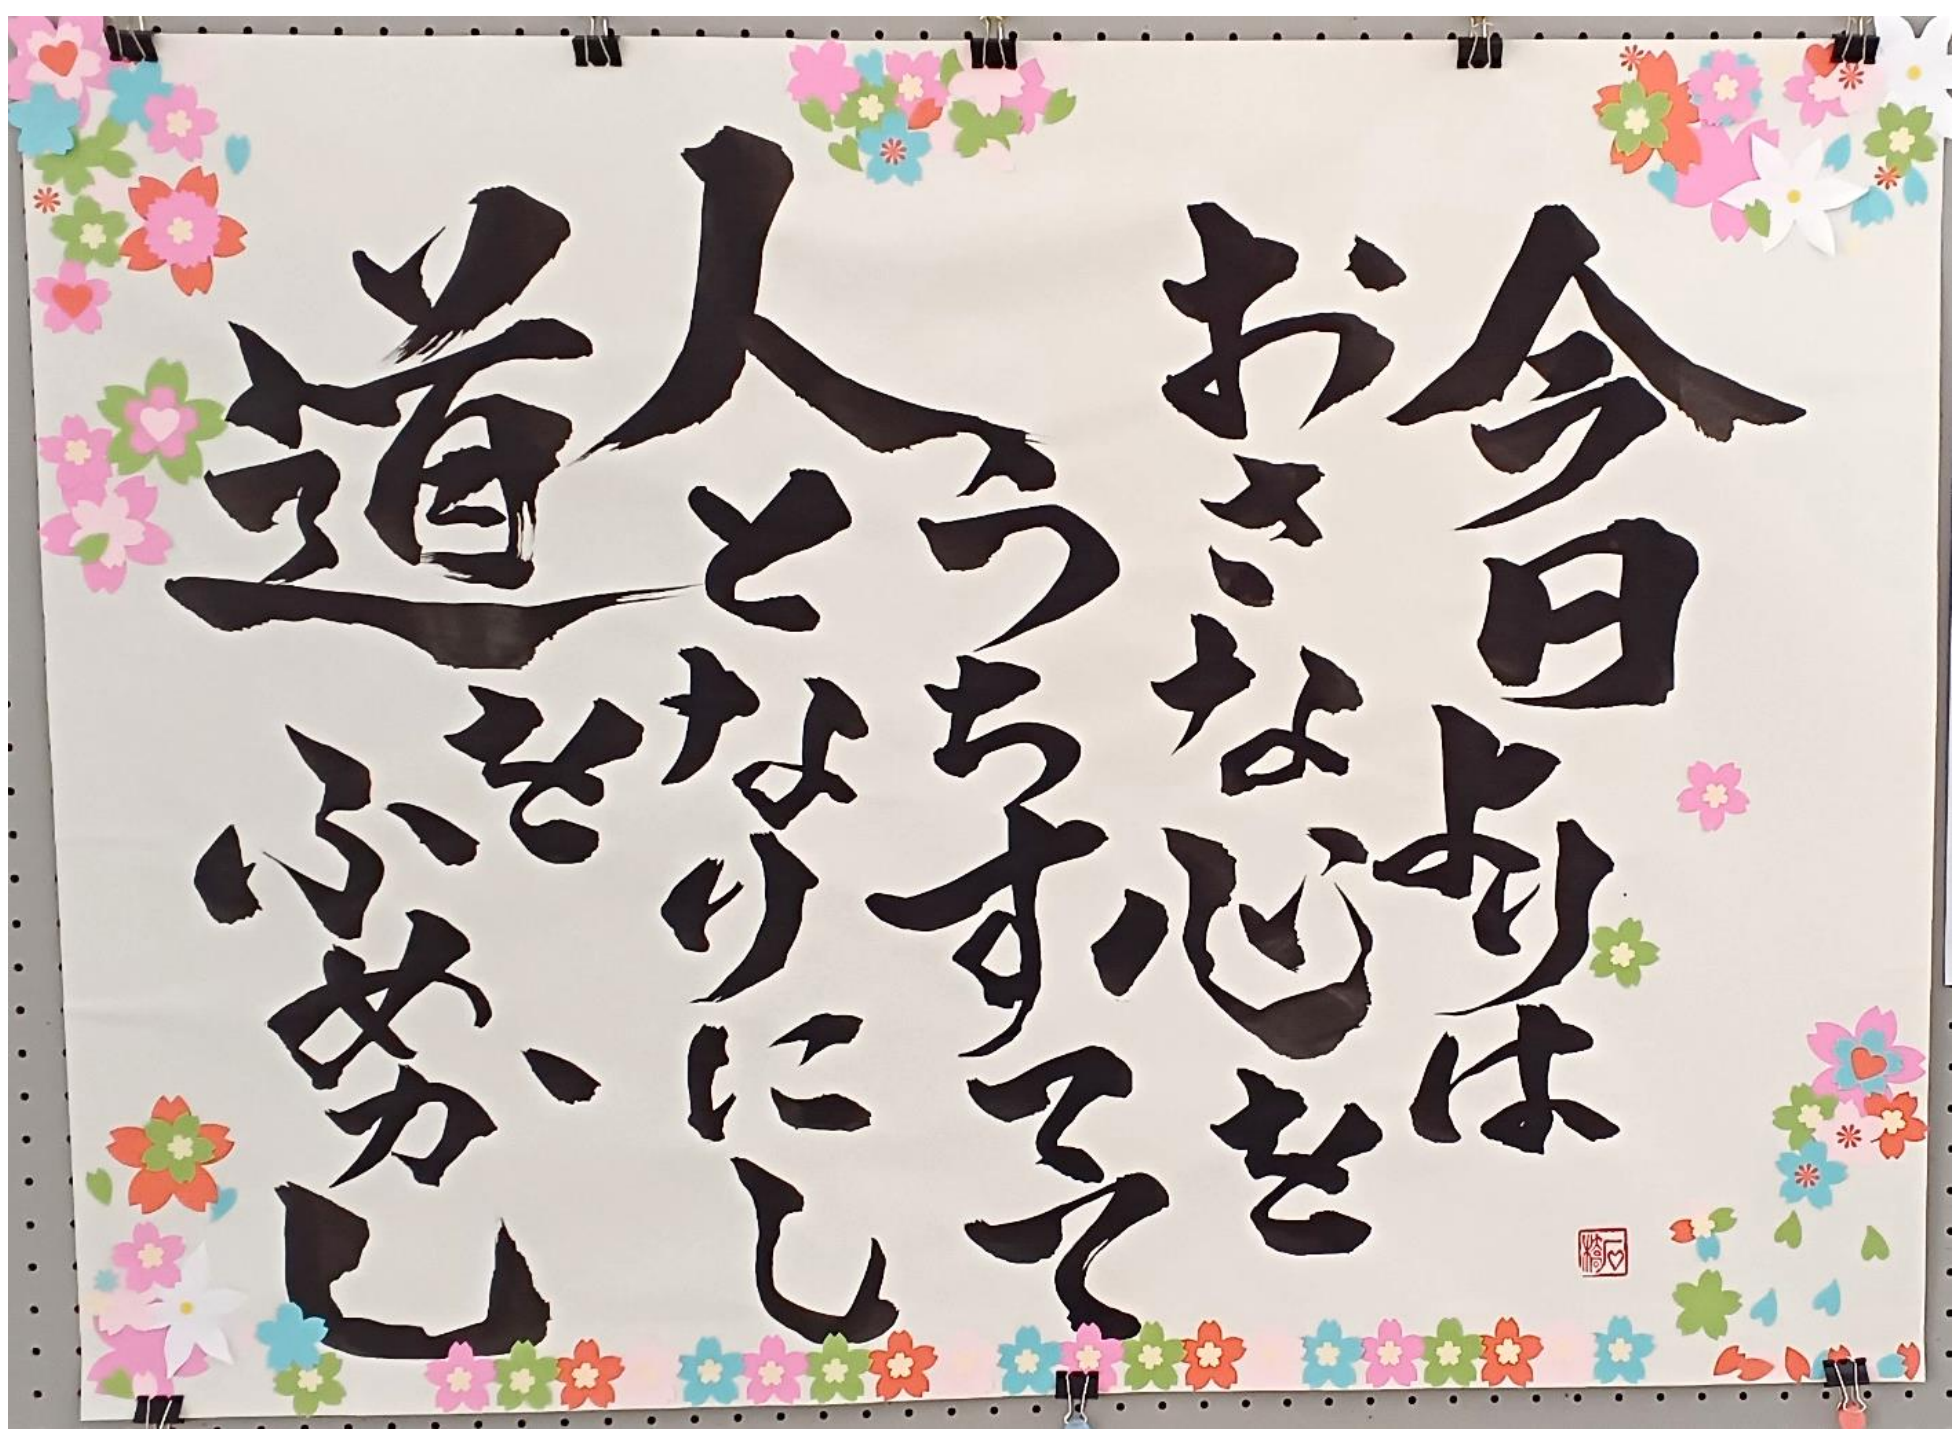 今日よりは
おさな心を
うちすてて
人となりにし
道をふめかし
石橋